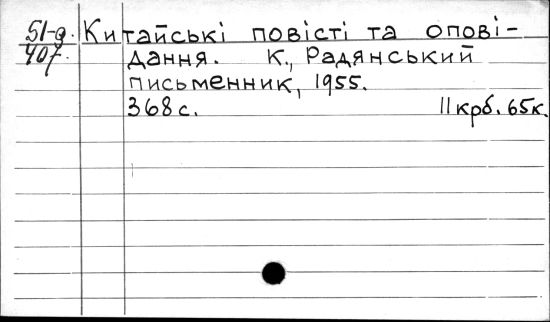 51-д. Китайські повісті та опові-
407. дання. К., Радянський
письменник, 1955.
368 с. 11 крб. 65к.